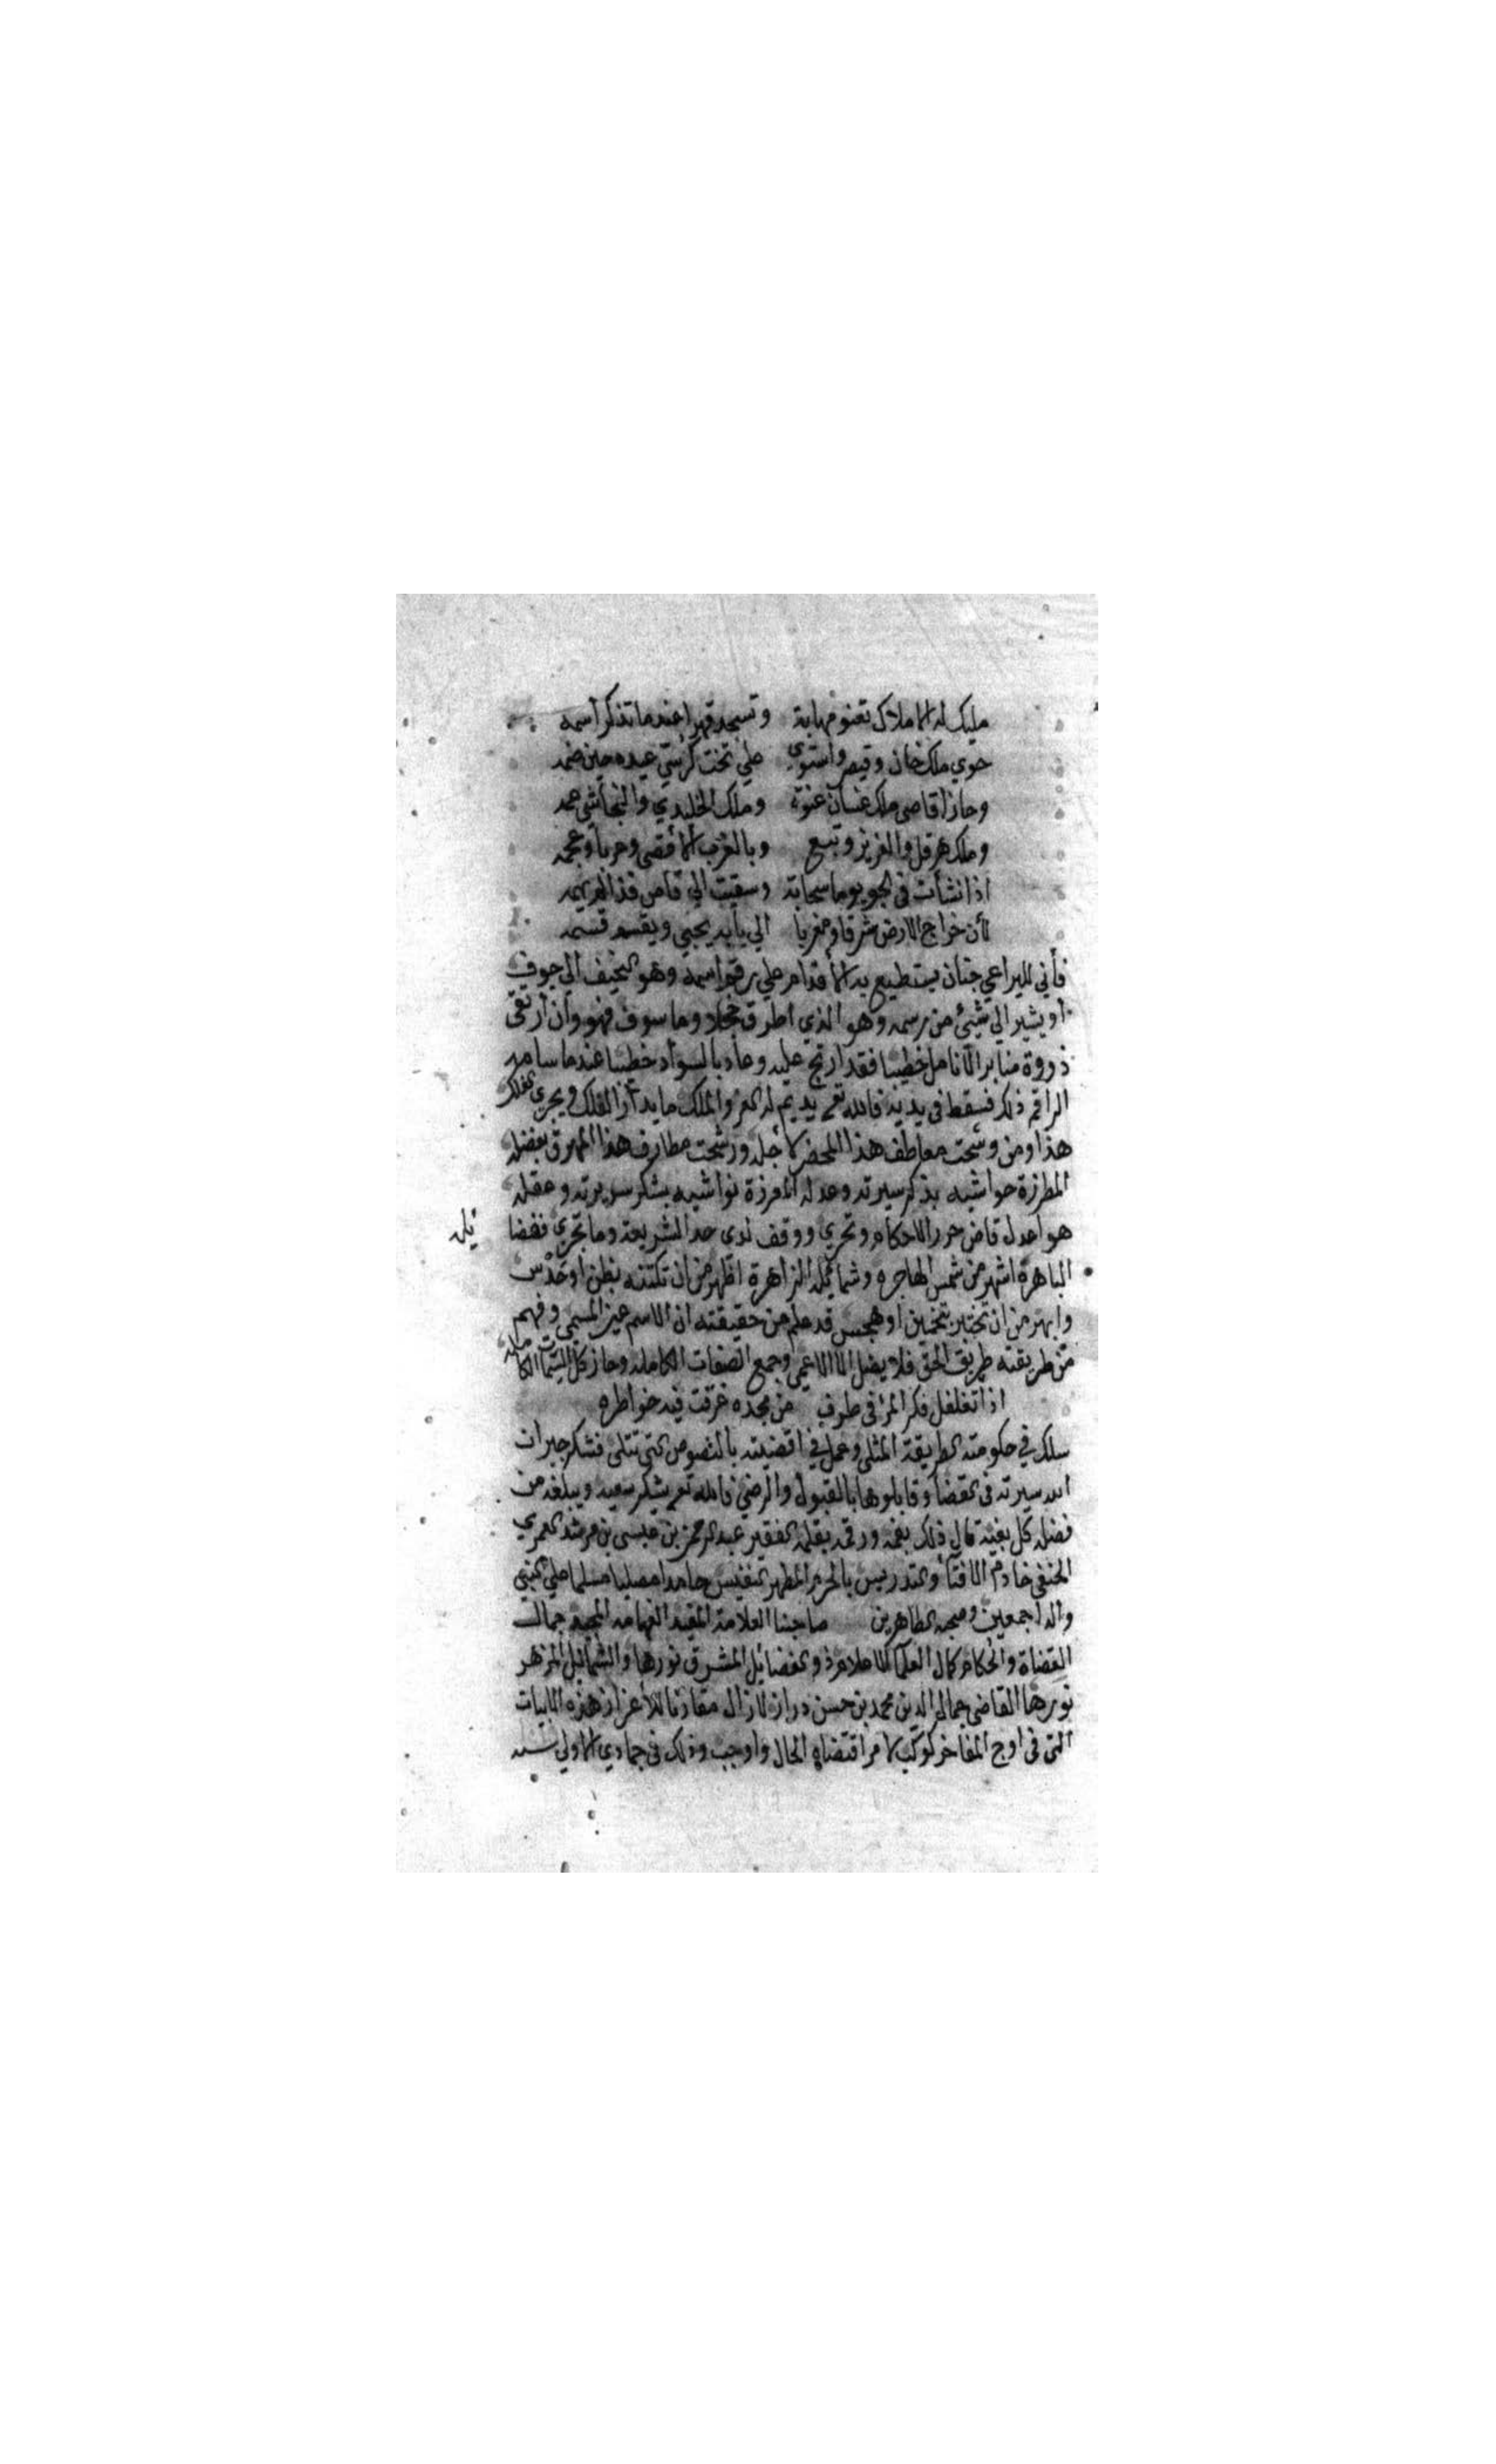 مليك له الاملاك تعنو مهابة وتسجد قهرا عندما تذكر أسمه
حوي ملك خان وقيصر واستوي علي تخت كرسي عيده حين ضمه
وحاز اقاصي ملك غسان عنوة وملك الخليدي والنجاشي عمه
وملك هرقل والعزيز وتبع وبالغرب الأقصى وعربا وعجمه
اذا نشأت في الجو يوما سحابة وسقيت الي قاص
لأن خراج الارض شرقا ومغربا الي بابه يجبي ويقسم قسمه
فأني لليراعي جنان يستطيع به الأقدام علي رقم اسمه وهو النحيف الي جوف
أو يشير الي شيئ من رسمه وهو الذي اطرق خجلا وما سوف فهو وأن أرتقى
ذروة منابر الأنامل خطيبا فقد ارتج عليه وعاد بالسواد خطيبا عندما سامه
الراقم ذلك فسقط في يديه فالله تعه يديم له العز والملك ما يدأر الفلك ويجري الفلك
هذا ومن وشحت معاطف هذا المحضر لأجله ورشحت مطارف هذا المهرق بفضله
المطرزة حواشيه بذكر سيرته وعدله المفرزة نواشيه بشكر سريرته وعقله
هو اعدل قاض حرر الاحكام وتحري ووقف لدى حد الشريعة وما تجري ففضا
ئله
الباهرة اشهر من شمس الهاجره وشمائله الزاهرة اظهر من ان تكتنه بظن او حدس
وابهر من ان تختبر بتخمين او هجس قد علم من حقيقته ان الاسم عين المسمي وفهم
من طريقته طريق الحق فلا يضل الا الاعمي وجمع الصفات الكامله وحاز كل السمات الكاملة
اذا تغلغل فكر المرء في طرف من مجده غرقت فيه خواطره
سلك في حكومته الطريقة المثلى وعمل في اقضيته بالنصوص التي تتلى فشكر جيران
الله سيرته في القضأ وقابلوها بالقبول والرضي فالله تعه يشكر سعيه ويبلغه من
فضله كل بغية قال ذلك بفمه ورقمه بقلمه الفقير عبد الرحمن بن عيسى بن مرشد العمري
الحنفي خادم الافتأ والتدريس بالحرم المطهر النفيس حامدا مصليا مسلما علي النبي
واله اجمعين وصحبه الطاهرين صاحبنا العلامة المفيد الفهامه المجيد جمال
القضاة والحكام كمال العلمآ الاعلام ذو الفضائل المشرق نورها والشمائل المزهر
نورها القاضي جمال الدين محمد بن حسن دراز لازال مقارنا للأعزاز هذه الابيات
التي في اوج المفاخر كوكب لأمر اقتضاه الحال واوجب وذلك في جمادي الأولي سنة